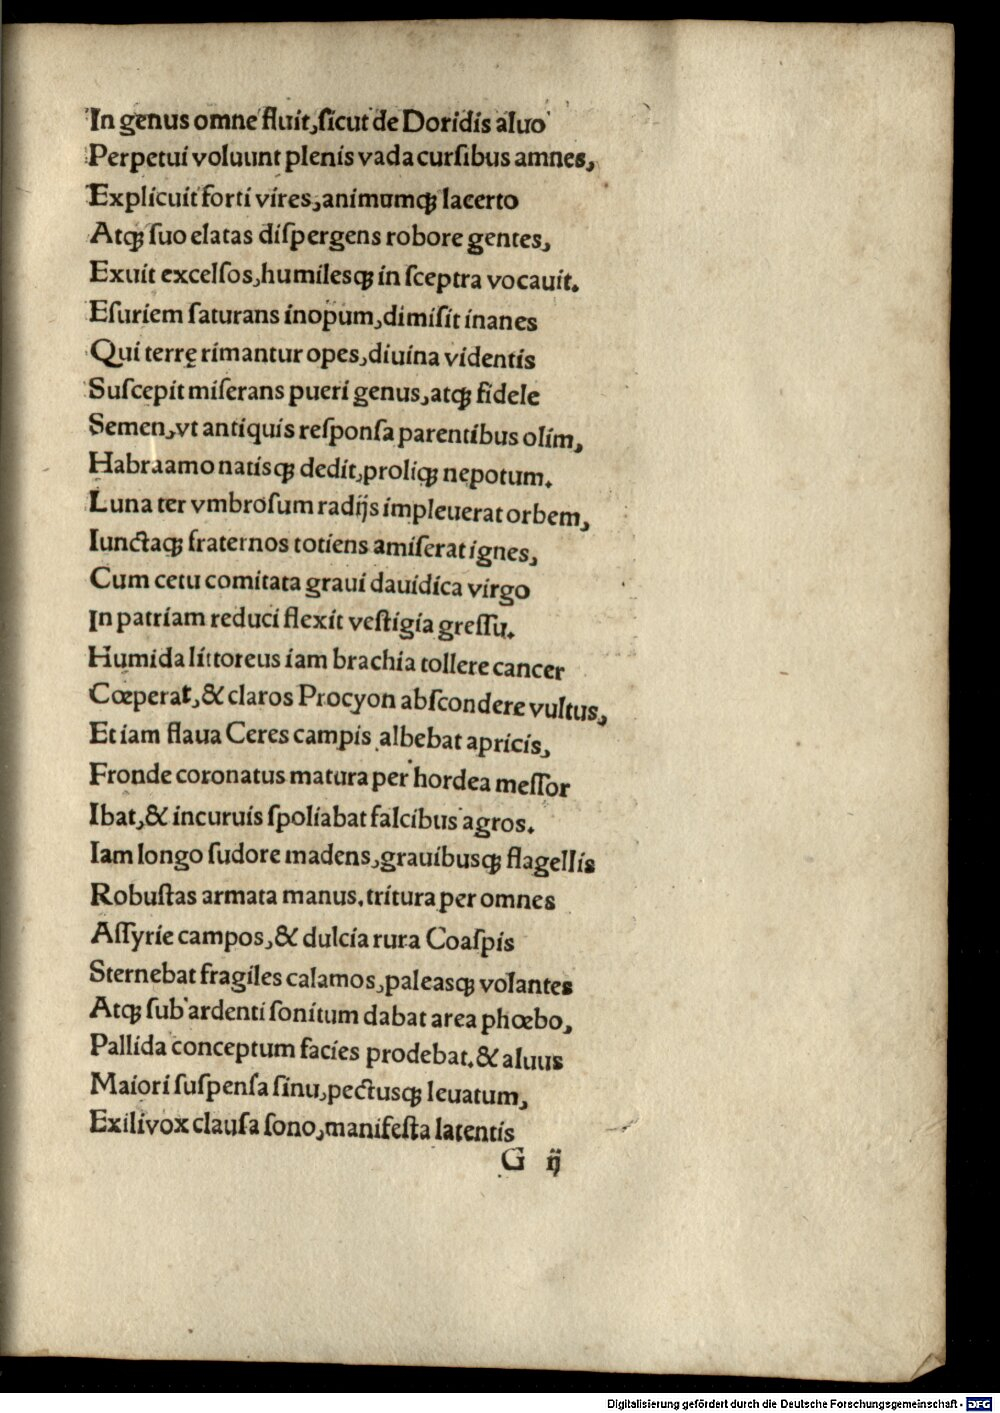 In genus omne fluit,ſicut de Doridis aluo
Perpetui voluunt plenis vada curſibus amnes,
Explicuit forti vires,animumqꝫ lacerto
Atqꝫ ſuo elatas diſpergens robore gentes,
Exuit excelſos,humilesqꝫ in ſceptra vocauit.
Eſuriem ſaturans inopum,dimiſit inanes
Qui terrę rimantur opes,diuina videntis
Suſcepit miſerans pueri genus,atqꝫ fidele
Semen,vt antiquis reſponſa parentibus olim,
Habraamo natisqꝫ dedit,proliqꝫ nepotum.
Luna ter vmbroſum radijs impleuerat orbem,
Iunctaqꝫ fraternos totiens amiſerat ignes,
Cum cetu comitata graui dauidica virgo
In patriam reduci flexit veſtigia greſſu.
Humida littoreus iam brachia tollere cancer
Cœperat,& claros Procyon abſcondere vultus,
Et iam flaua Ceres campis albebat apricis,
Fronde coronatus matura per hordea meſſor
Ibat,& incuruis ſpoliabat falcibus agros.
Iam longo ſudore madens,grauibusqꝫ flagellis
Robuſtas armata manus.tritura per omnes
Aſſyrie campos,& dulcia rura Coaſpis
Sternebat fragiles calamos,paleasqꝫ volantes
Atqꝫ ſub ardenti ſonitum dabat area phœbo,
Pallida conceptum facies prodebat.& aluus
Maiori ſuſpenſa ſinu,pectusqꝫ leuatum,
Exili vox clauſa ſono,manifeſta latentis
G ij
Digitalisierung gefördert durch die Deutsche Forschungsgemeinschaft - DFG